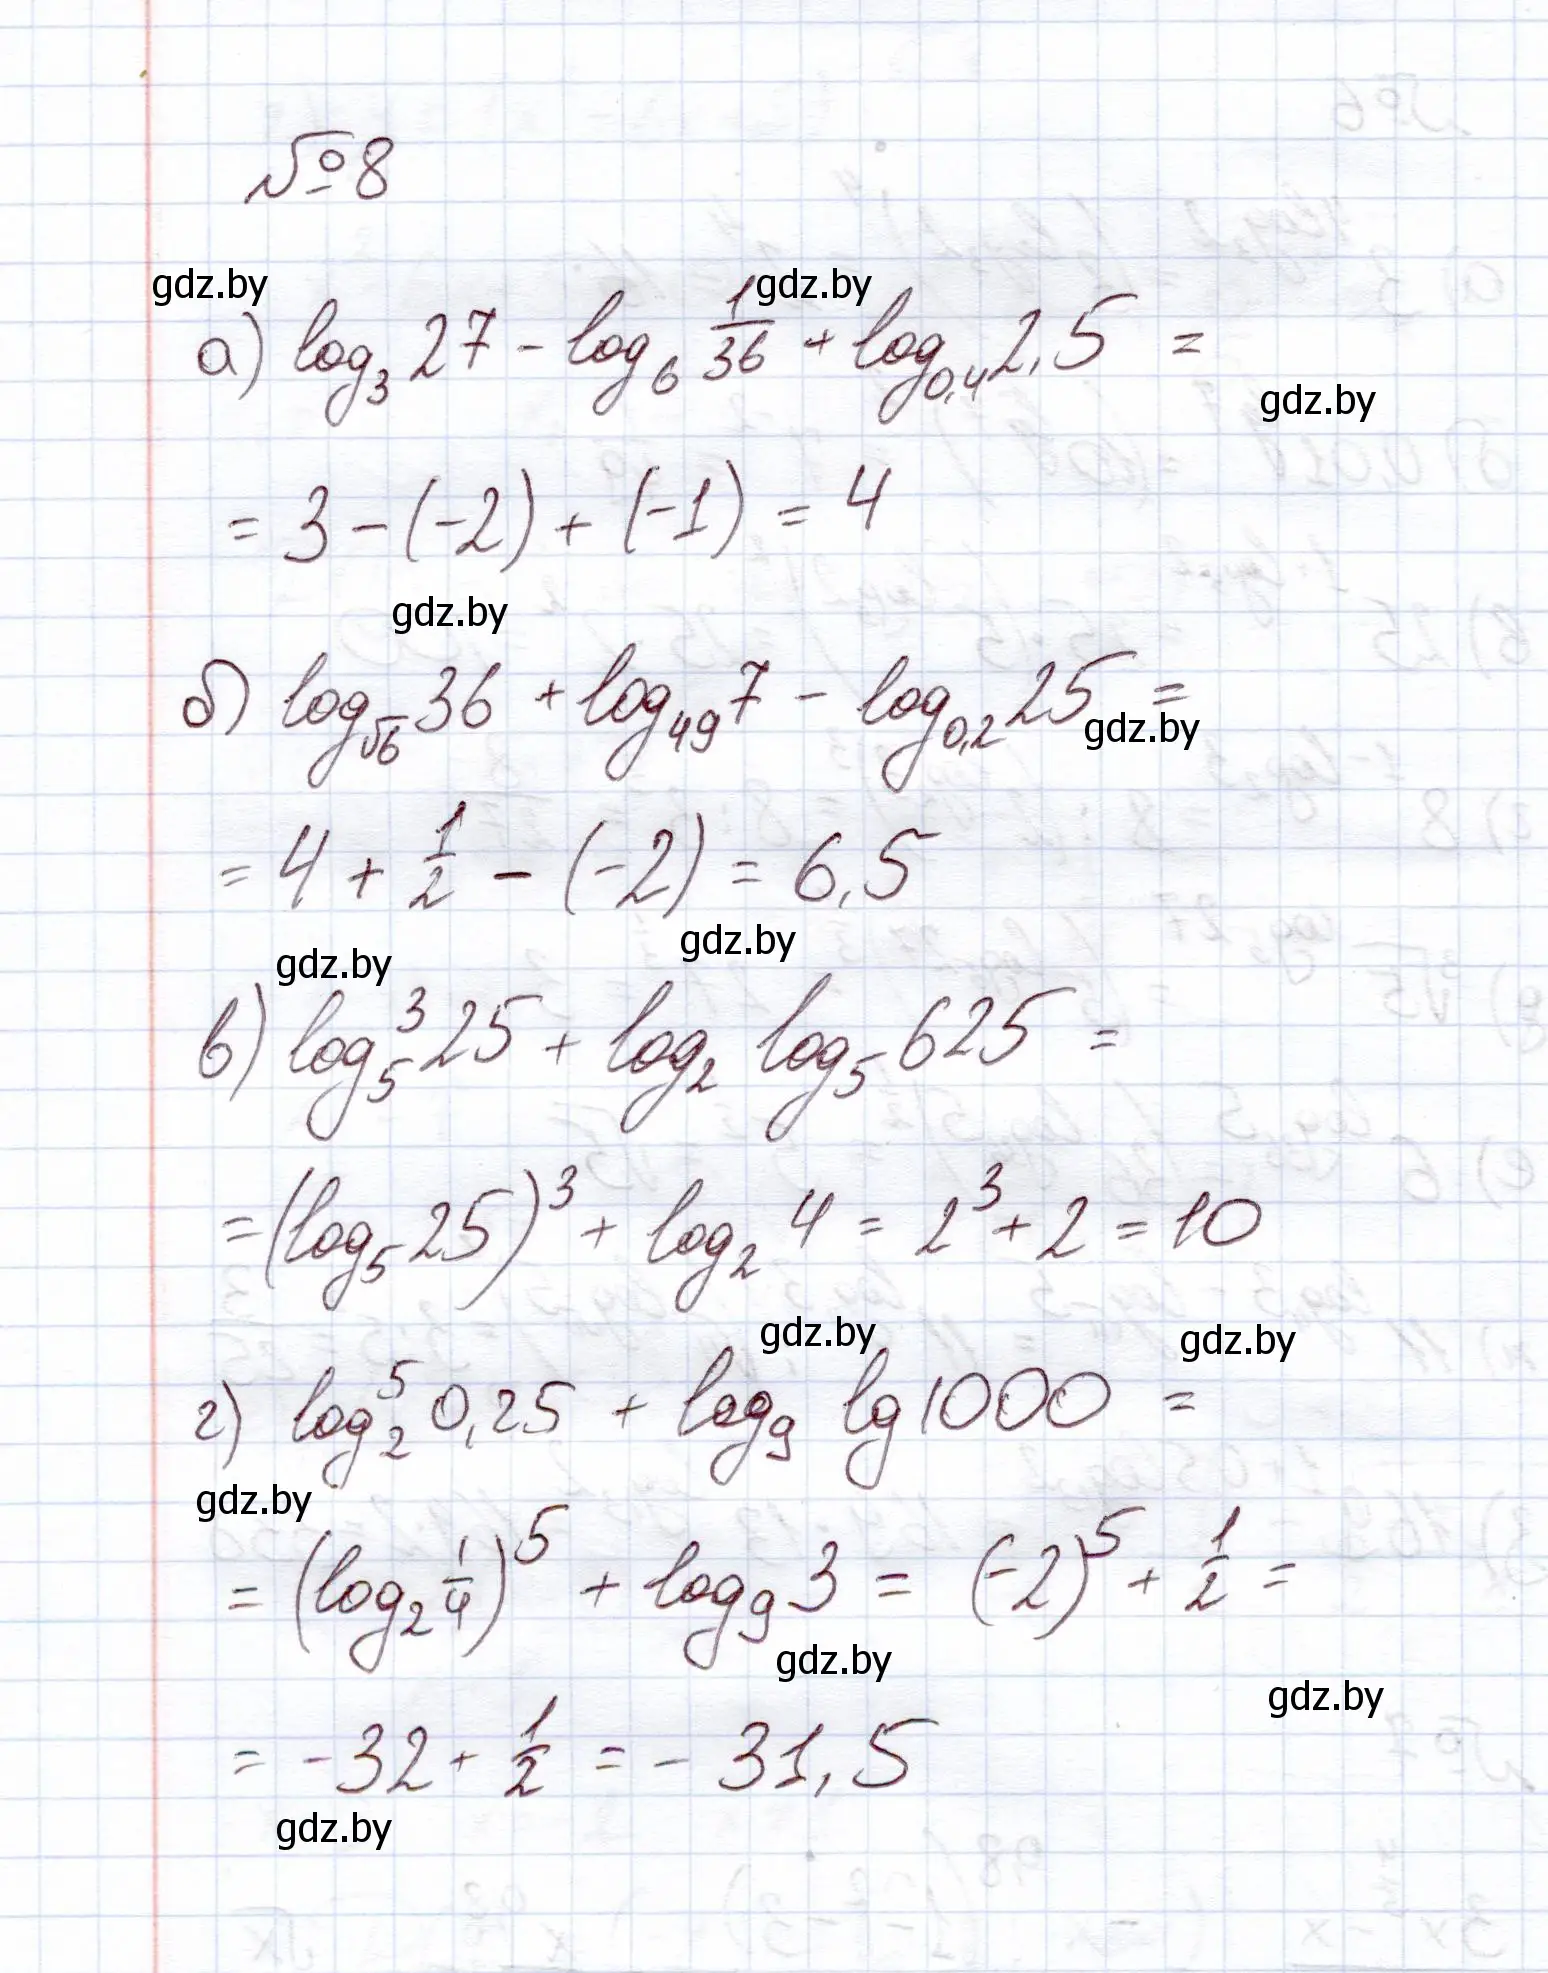 №8
gdz.by gdz.by
а) log₃ 27 - log₆ 1/36 + log₀,₄ 2,5 =
gdz.by
= 3 - (-2) + (-1) = 4
gdz.by
б) log_√6 36 + log₄₉ 7 - log₀,₂ 25 =
gdz.by
= 4 + 1/2 - (-2) = 6,5
gdz.by gdz.by
в) log₅³ 25 + log₂ log₅ 625 =
= (log₅ 25)³ + log₂ 4 = 2³ + 2 = 10
gdz.by gdz.by
г) log₂⁵ 0,25 + log₉ lg 1000 =
gdz.by
= (log₂ 1/4)⁵ + log₉ 3 = (-2)⁵ + 1/2 =
gdz.by gdz.by
= -32 + 1/2 = - 31,5
gdz.by